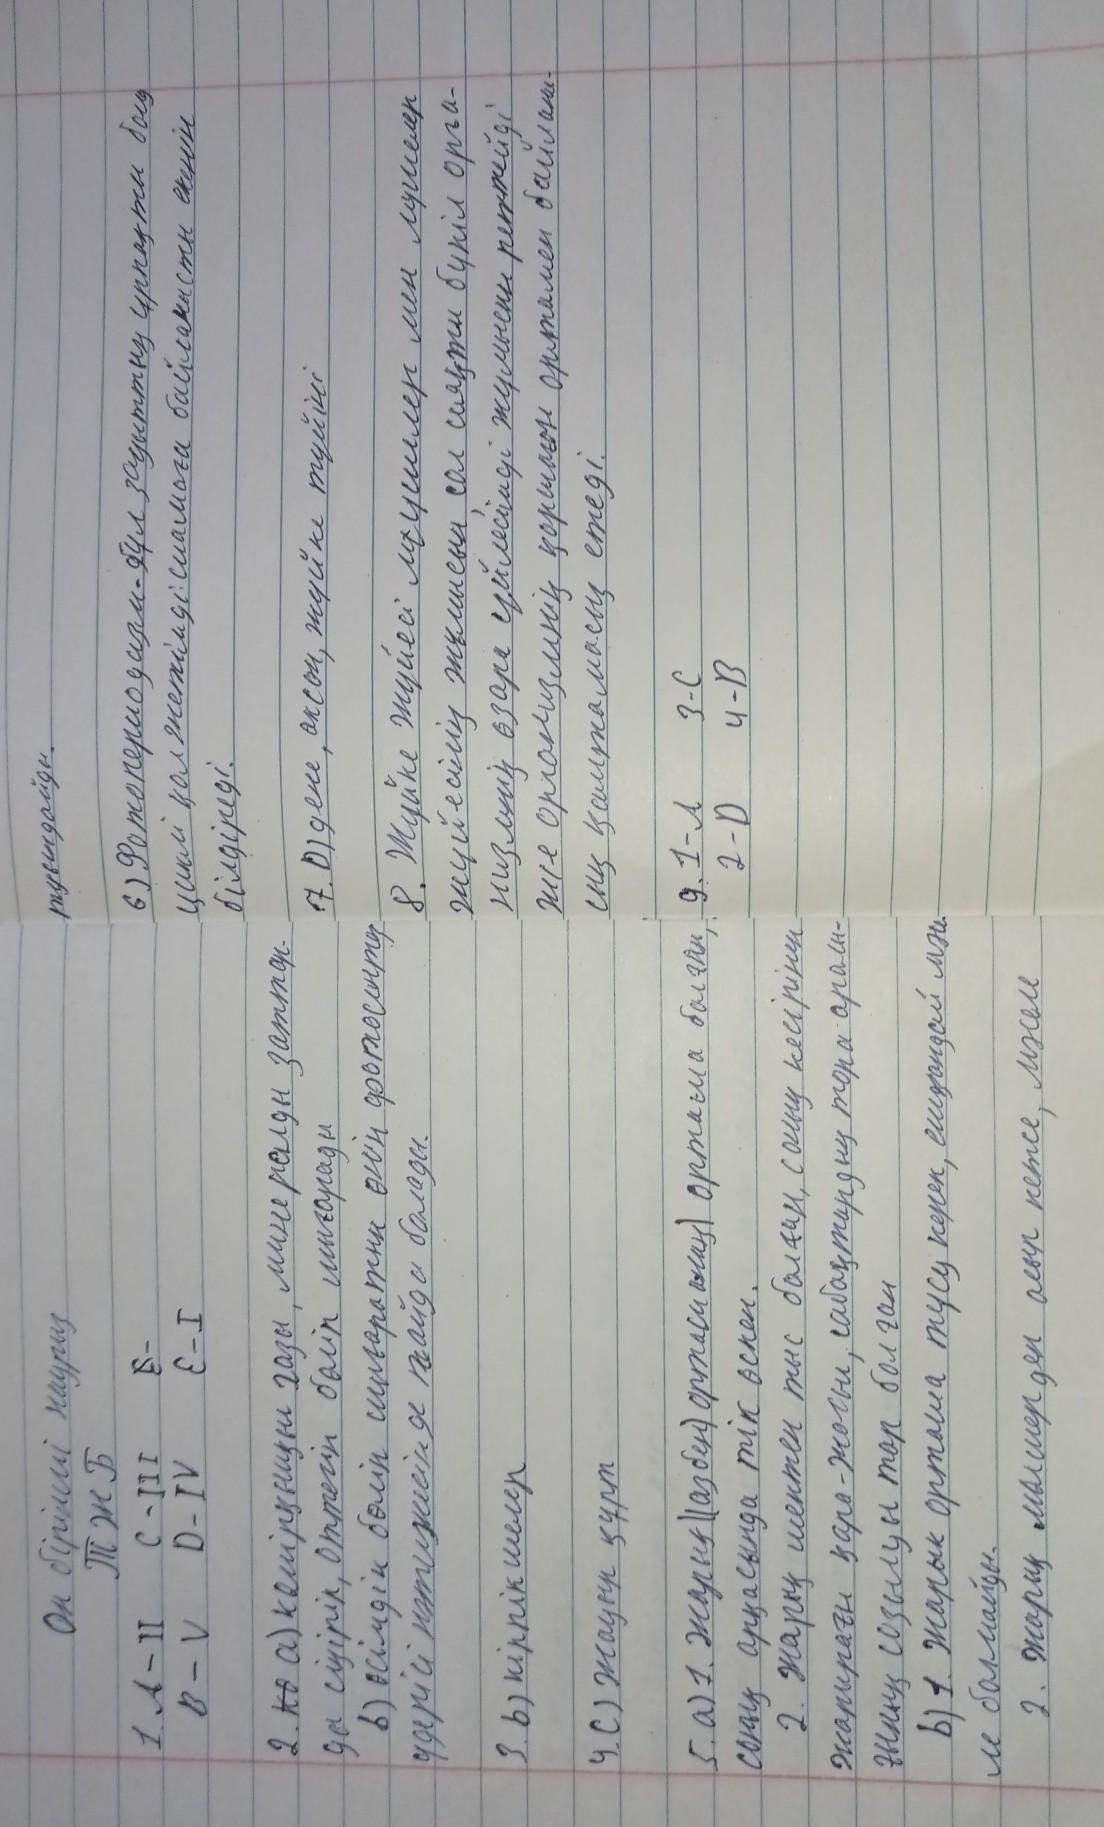 Он бірінші наурыз
ТЖБ
1. A – II C – III B –
B – V D – IV E – I
2. а) көмірқышқыл газы, минералды заттар-
ды сіңіріп, оттегін бөліп шығарады
b) өсімдік бөліп шығаратын өнім фотосинтез
үдерісі нәтижесінде пайда болады.
3. b) кірпікшелер
4. C) жауын құрт
5. a) 1. Жарық орташа болған,
соның арқасында тік өскен.
2. Жарық шектен тыс болған, соның кесірінен
жапырағы қара-жасыл, сабақтардың тора аралы-
ғының созылуы тар болған
b) 1. Жарық орташа түсу керек, ешқандай мәсе
ле болмайды.
2. Жарық мөлшерден асып кетсе, мәселе
туындайды.
6) Фотопериодизм - бұл зауыттың ұрпақты болу
циклі қол жетімді шамаға байланысты екенін
білдіреді.
7. D) дене, аксон, жүйке түйіні
8. Жүйке жүйесі мүшелер мен мүшелер
жүйесінің жұмысын, сол сияқты бүкіл орга-
низмнің өзара үйлесімді жұмысын реттейді
және организмнің қоршаған ортамен байланы-
сын қамтамасыз етеді.
9. 1 - A 3 - C
2 - D 4 - B